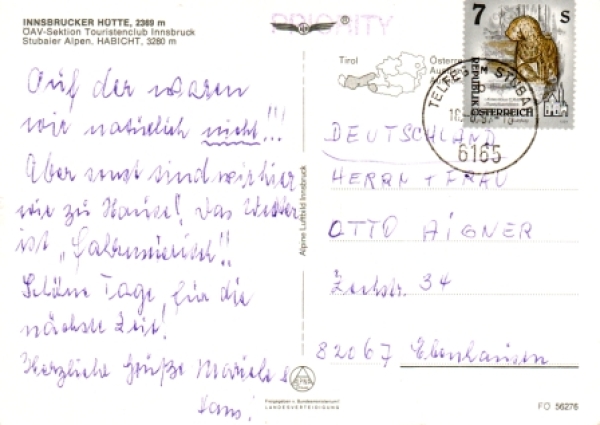 INNSBRUCKER HÜTTE, 2369 m
ÖAV-Sektion Touristenclub Innsbruck
Stubaier Alpen, HABICHT, 3280 m
PRIORITY
Auf der waren
wir natürlich nicht!!!
Aber sonst sind wir hier
wie zu Hause! Das Wetter
ist
Schöne Tage, für die
nächste Zeit!
Herzliche Grüße
Hans.
Alpine Luftbild Innsbruck
Tirol
7 S
REPUBLIK
ÖSTERREICH
6165
DEUTSCHLAND
HERRN + FRAU
OTTO AIGNER
34
82067 Ebenhausen
LANDESVERTEIDIGUNG
FO 56276